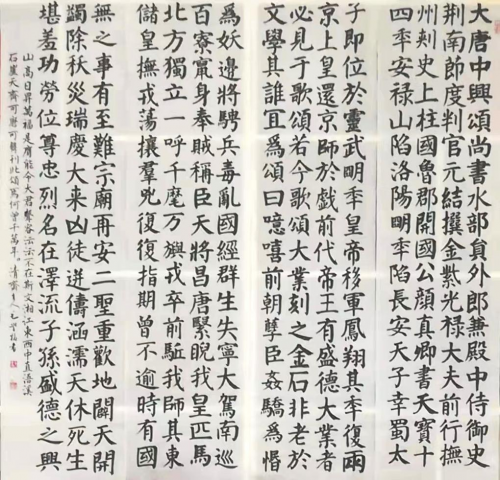 大唐中興頌尚書水部員外郎兼殿中侍御史
荆南節度判官元結撰金紫光禄大夫前行撫
州刾史上柱國魯郡開國公顏真卿書天寶十
四秊安禄山陷洛陽明秊陷長安天子幸蜀太
子即位於靈武明秊皇帝移軍鳳翔其秊復兩
京上皇還京師於戲前代帝王有盛德大業者
必見于歌頌若今歌頌大業刻之金石非老於
文學其誰宜爲頌曰噫嘻前朝孽臣姦驕爲惛
爲妖邊將騁兵毒亂國經群生失寧大駕南巡
百寮竄身奉賊稱臣天將昌唐緊睨我皇匹馬
北方獨立一呼千麾万旟我卒前駈我師其東
儲皇撫戎蕩攘羣兇復復指期曾不逾時有國
無之事有至難宗廟再安二聖重歡地闢天開
蠲除袄災瑞慶大来凶徒逆儔涵濡天休死生
堪羞功勞位尊忠烈名在澤流子孫盛德之興
山高日昇萬福是膺能令大君聲容沄沄不在斯文湘江東西中直浯溪
石崖天齊可磨可鐫刊此頌焉何曾千萬年。清齋